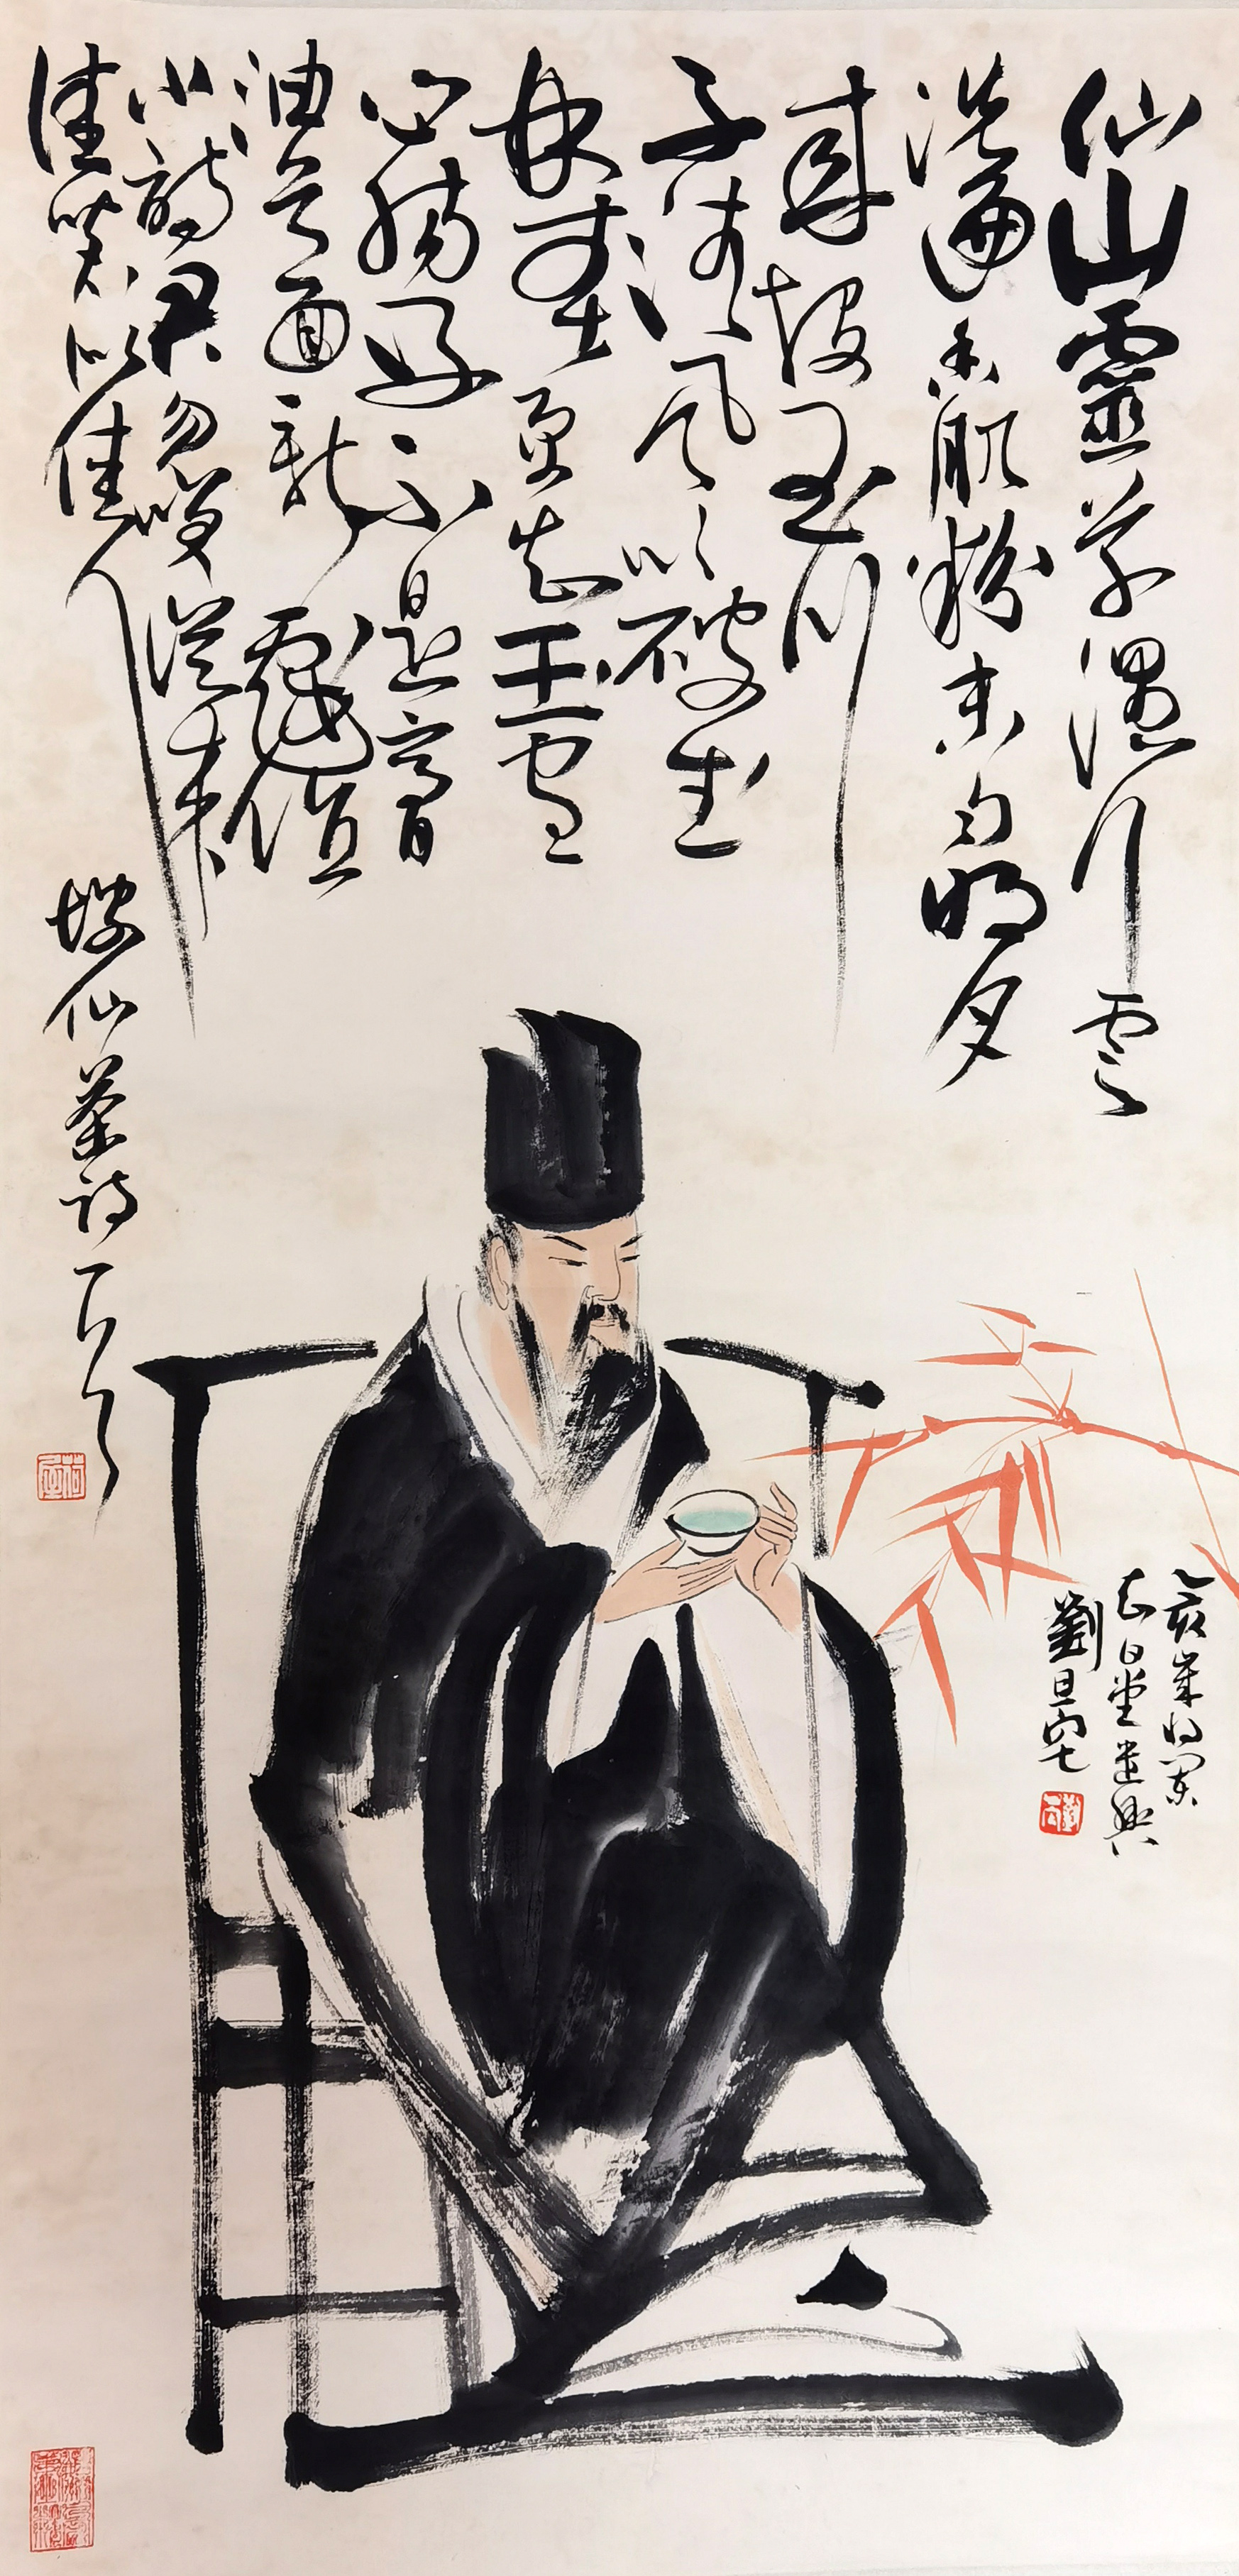 仙山靈草濕行雲
洗遍香肌粉未勻明月
來投玉川
子清風吹破武
林春要知玉雪
心腸好不是膏
油首面新戲作
小詩君勿咲從來
佳茗似佳人
坡仙茶詩
乙亥歲將闌
堂遣興
劉旦宅